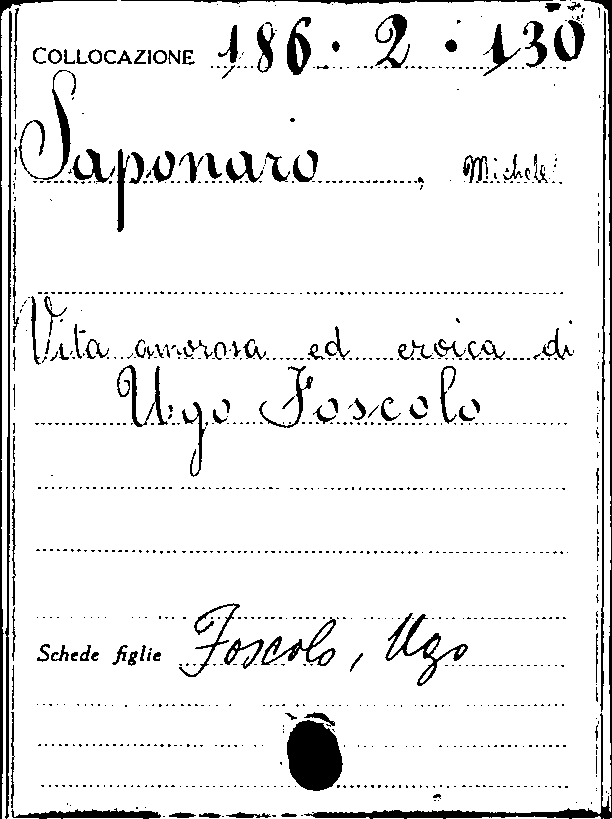 COLLOCAZIONE 186 · 2 · 130
Saponaro, Michele
Vita amorosa ed eroica di
Ugo Foscolo
Schede figlie Foscolo, Ugo